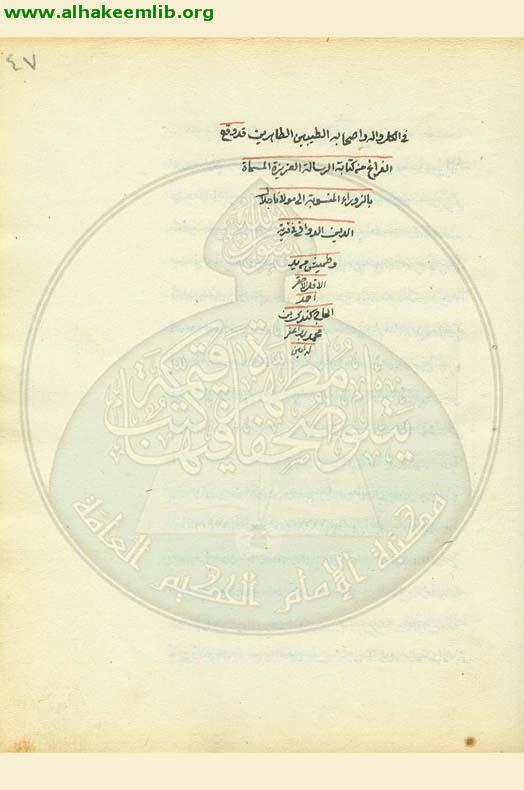 www.alhakeemlib.org
٤٧
في الكل واله واصحابه الطيبين الطاهرين قد وقع
الفراغ من كتابة الرسالة العزيزة المسماة
بالزوراء المنسوبة الى مولانا جلال
الدين الدواني في قرية
الاقل الاحقر
احمد
الحاج بن
محمد
رسول الله
مطهرة قيمة
يتلو صحفا فيها كتب
مكتبة الإمام الحكيم العامة